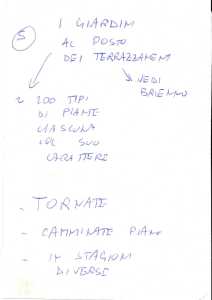 5
I GIARDINI
AL POSTO
DEI TERRAZZAMENTI
VEDI
200 TIPI
DI PIANTE
CIASCUNA
COL SUO
CARATTERE
- TORNATE
- CAMMINATE PIANO
- IN STAGIONI
DIVERSE